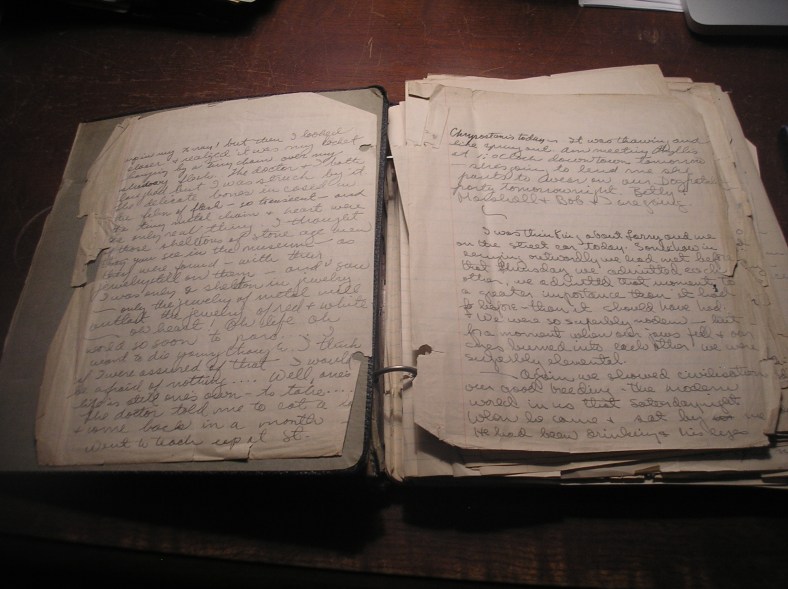 upon my X ray! but then I looked
closer & realized it was my locket
hanging by a tiny chain over my
shadowy flesh. The doctor & I both
laughed but I was struck by it
the delicate bones in cased in
the film of flesh - so transient - and
the tiny metal chain & heart were
the only real thing. I thought
of those skeletons of stone age men
those you see in the museums as
they were found - with their
jewelry still on them - and I saw
I was only a skeleton in jewelry
- only the jewelry of metal will
outlast the jewelry of red & white
- oh heart! Oh life oh
world so soon to
want to die young though. I think
if I were assured of that I would
be afraid of nothing.... Well, one's
life is still one's own - to take...
The doctor told me to eat, a
& come back in a month
went to teach up at St.
today - It was thawing and
like spring out am meeting Phyllis
at 1 o'clock downtown tomorrow
- she's going to lend me ski
pants to wear on our
party Tomorrow night. Betty &
& Bob & I are going.
I was thinking about Larry and me
on the street car today. Somehow in
seeing outwardly we had met before
that Thursday we admitted each
other, we admitted that moment to
a greater importance than it had
before - than it should have had.
& We were so superbly modern in
for a moment when our jaws fell & our
eyes burned into each other we were
superbly elemental.
- Again we showed civilisation
our good breeding - the modern
world in us that Saturday night
when he came & sat by me
He had been drinking & his eyes